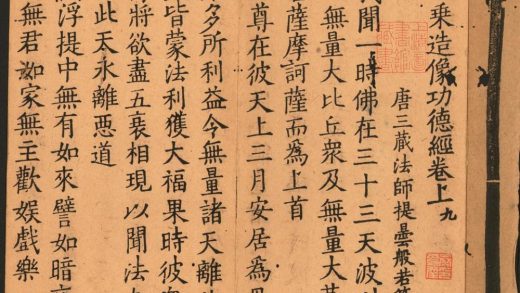 乘造像功德經卷上 九
唐三藏法師提曇般若
聞一時佛在三十三天波
無量大比丘衆及無量大
薩摩訶薩而為上首
尊在彼天上三月安居為
多所利益今無量諸天離
皆蒙法利獲大福果時彼
將欲盡五衰相現以聞法
此天永離惡道
浮提中無有如來譬如暗
無君如家無主歡娛戲樂